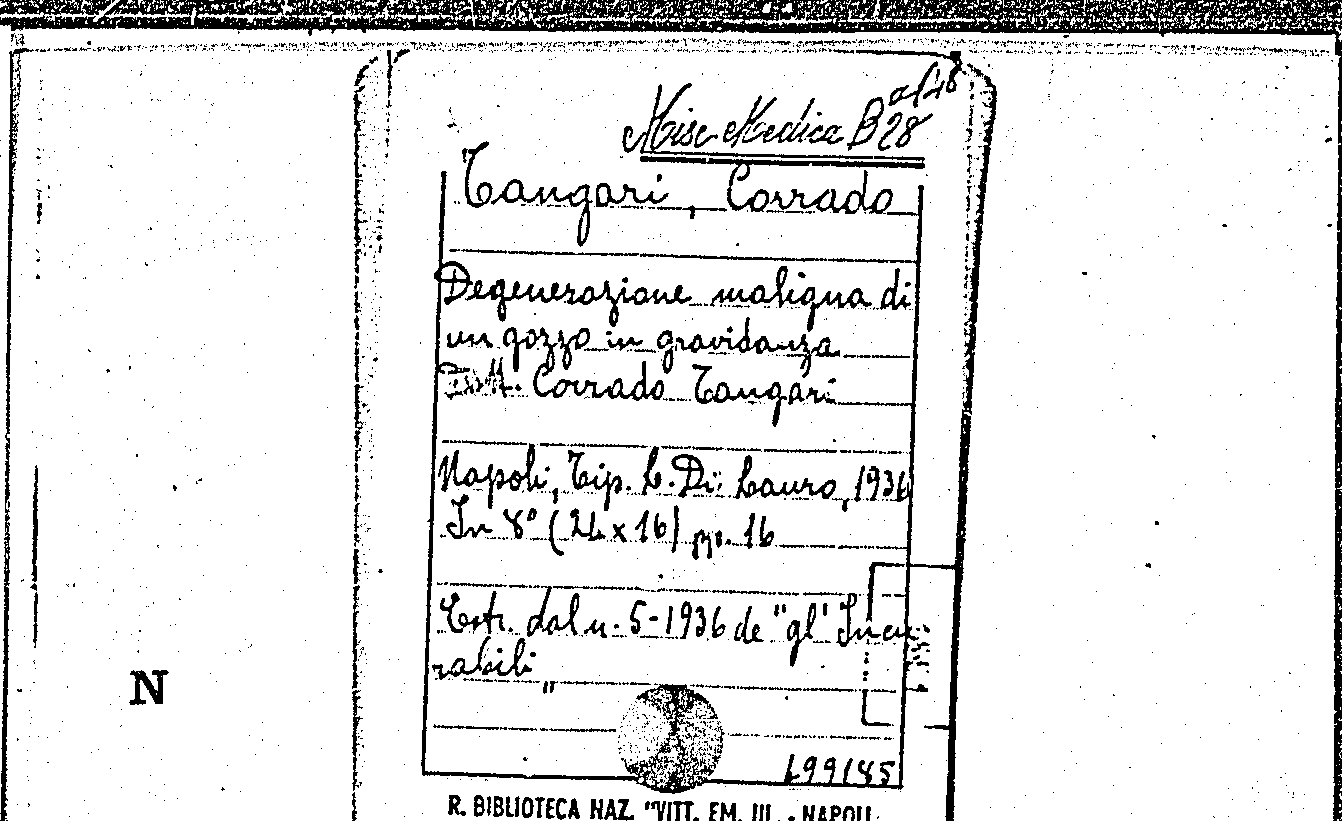 Misc Medica B 28
Tangari, Corrado
Degenerazione maligna di
un gozzo in gravidanza
Dott. Corrado Tangari
Napoli, Tip. L. Di Lauro, 1936
In 8° (24 x 16) pp. 16
Estr. dal n. 5-1936 de "gl' Incu-
rabili"
N
499185
R. BIBLIOTECA NAZ. "VITT. EM. III. - NAPOLI